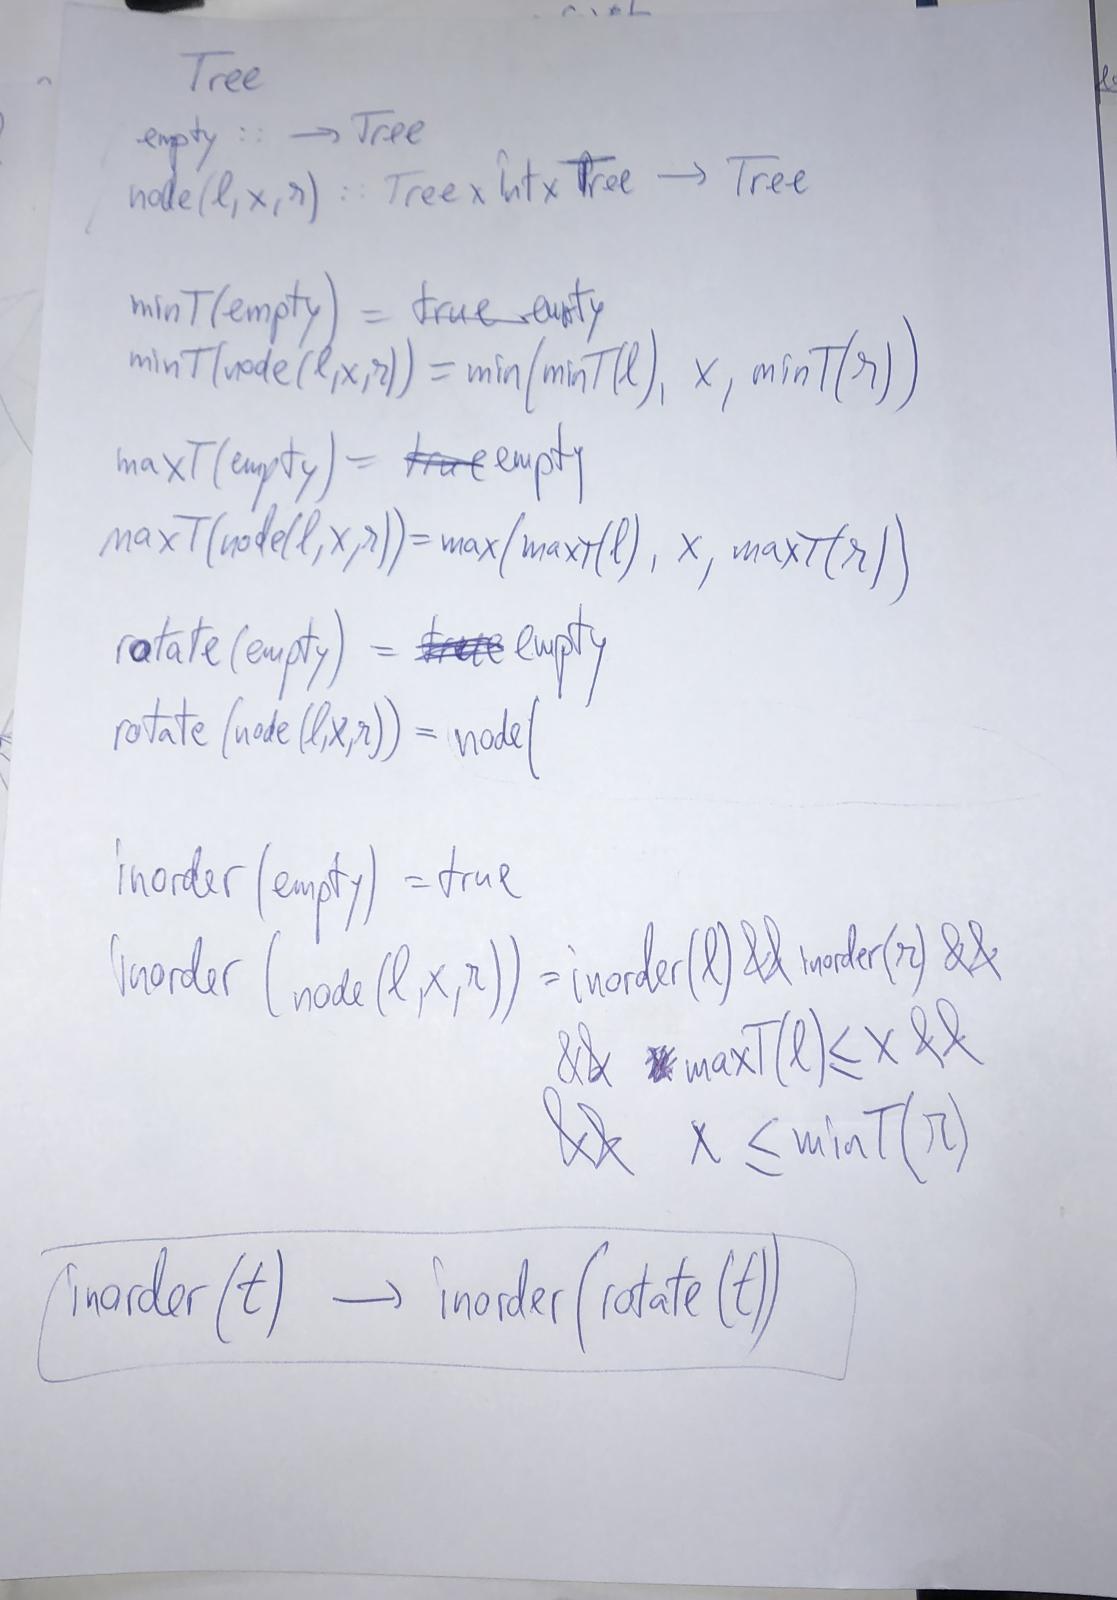 Tree
empty :: → Tree
node(l,x,r) :: Tree x Int x Tree → Tree
minT(empty) = true empty
minT(node(l,x,r)) = min(minT(l), x, minT(r))
maxT(empty) = true empty
maxT(node(l,x,r)) = max(maxT(l), x, maxT(r))
rotate(empty) = true empty
rotate(node(l,x,r)) = node(
inorder(empty) = true
inorder(node(l,x,r)) = inorder(l) && inorder(r) &&
&& maxT(l) ≤ x &&
&& x ≤ minT(r)
inorder(t) → inorder(rotate(t))